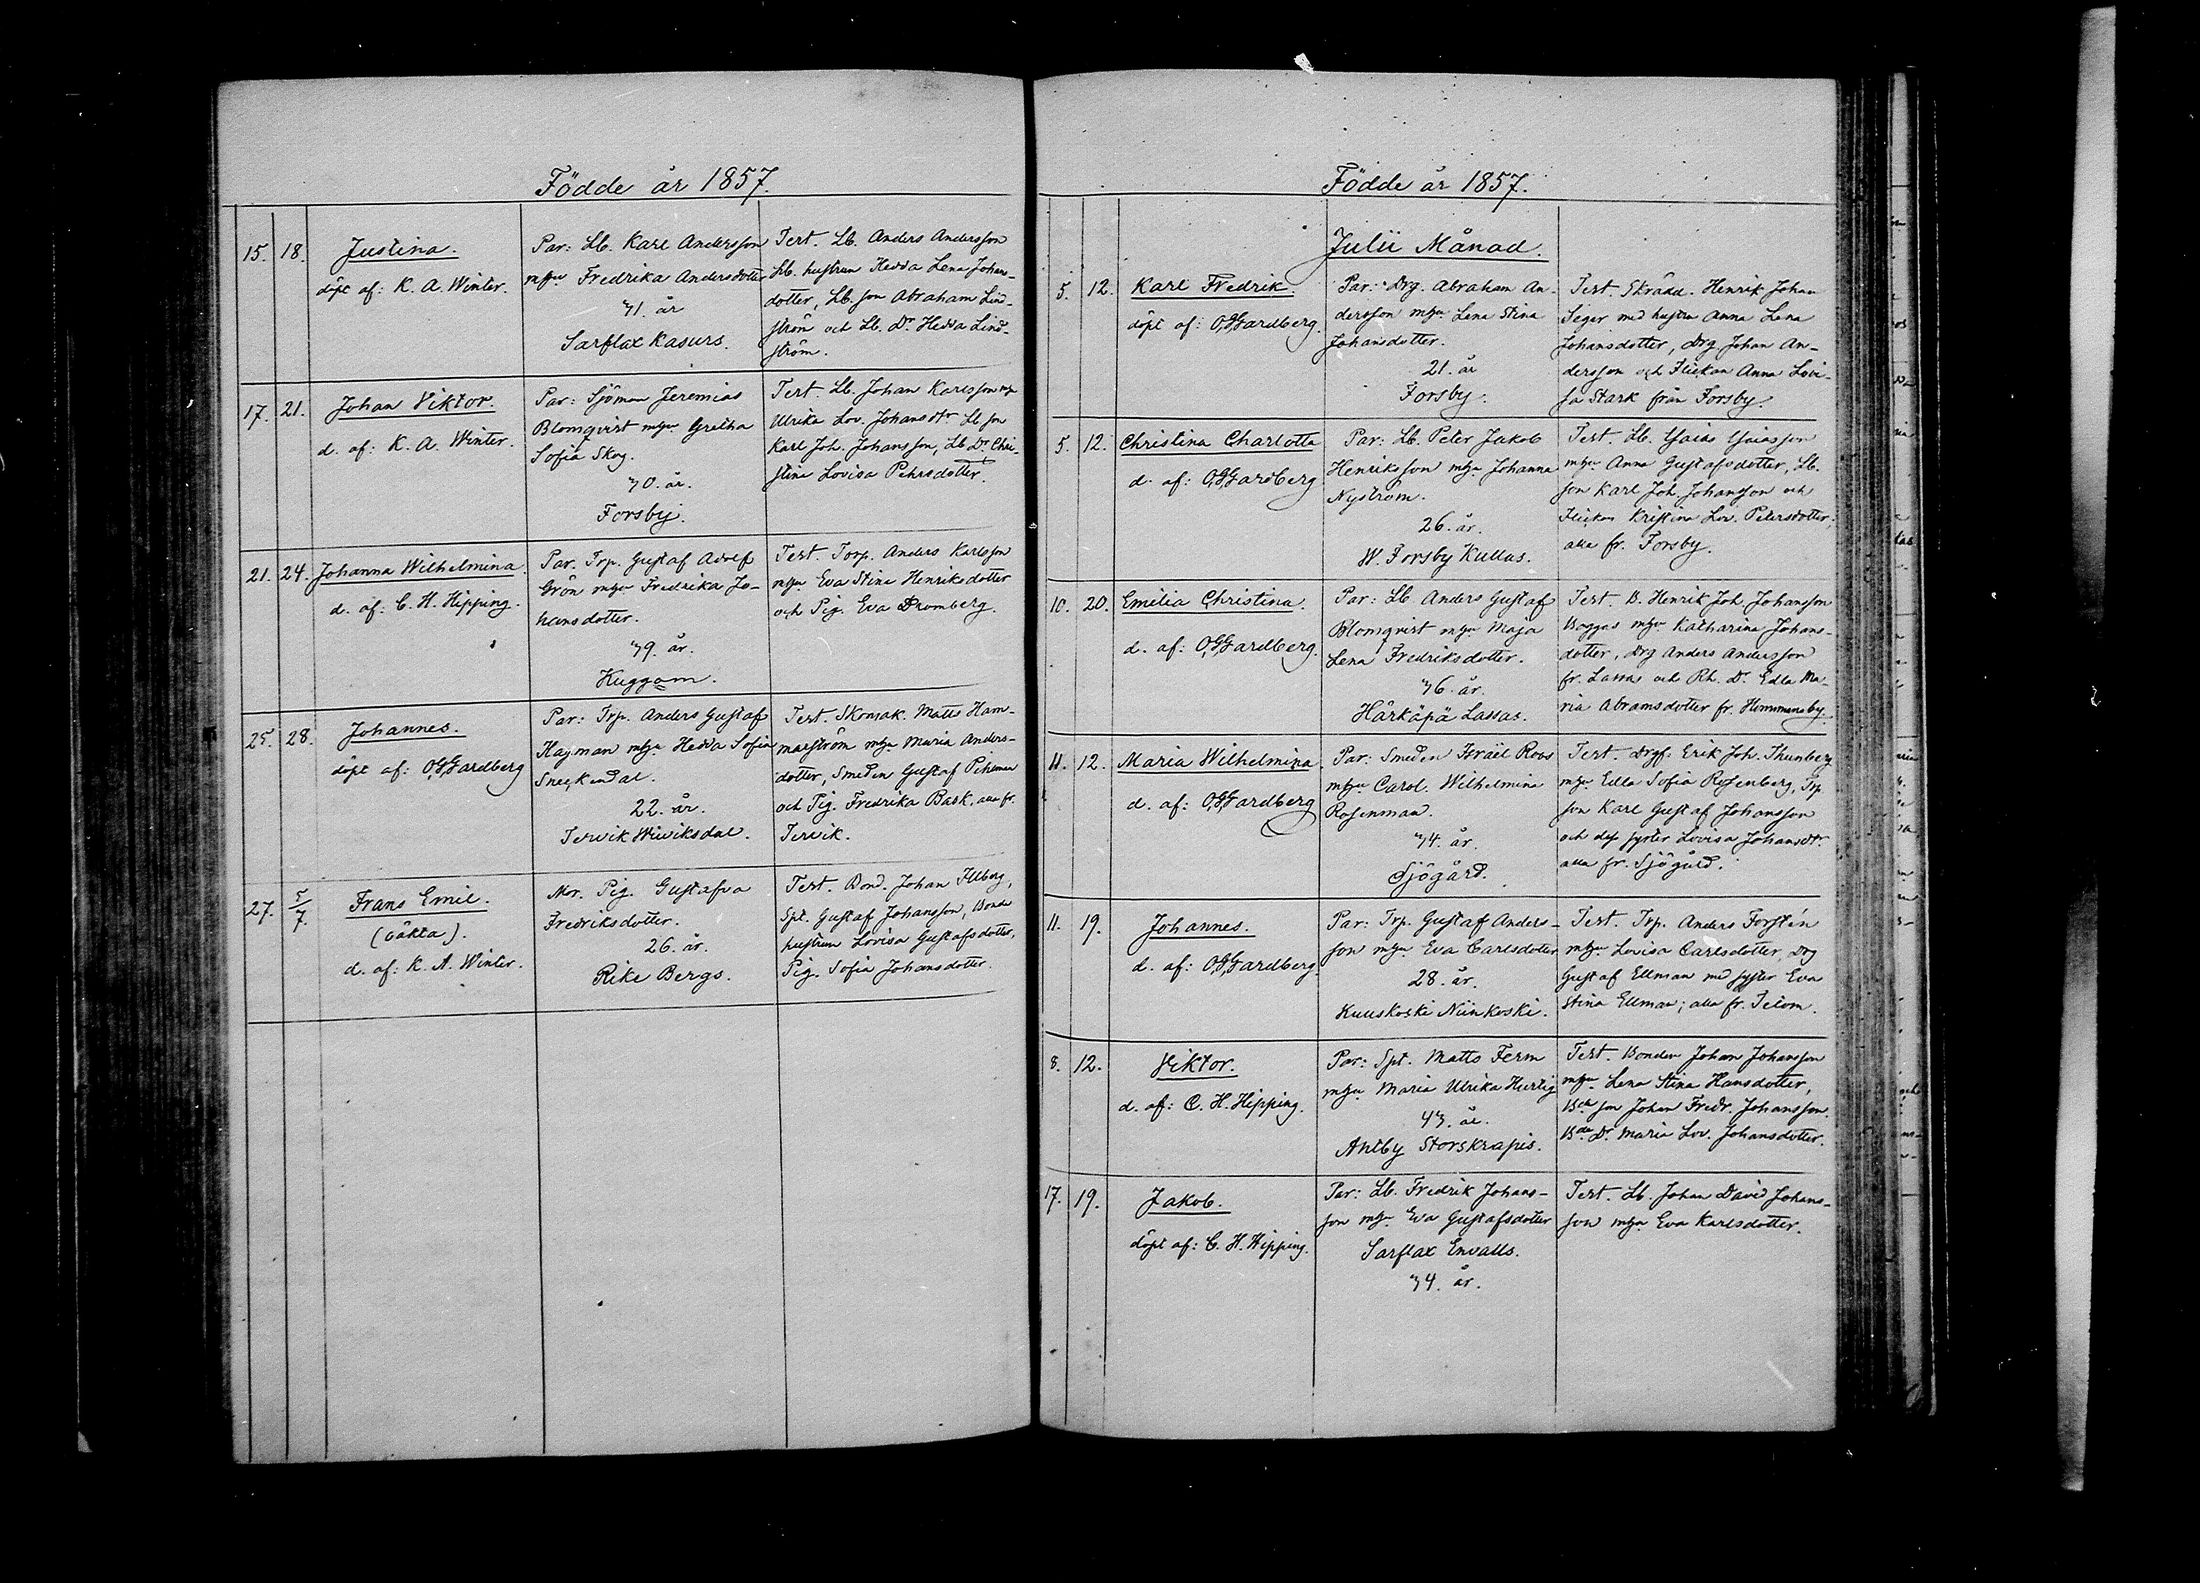 Födde år 1857.
15. 18. Justina.
döpt af: K. A. Winter.
Par: Lb. Karl Andersson
m hu Fredrika Andersdotter
41. år
Sarflax Kasurs.
Test. Lb. Anders Andersson
Lb. hustrun Hedda Lena Johans-
dotter, Lb. son Abraham Lind-
ström och Lb. Dr. Hedda Lind-
ström.
17. 21. Johan Viktor.
d. af: K. A. Winter.
Par: Sjöman Jeremias
Blomqvist m hu Gretha
Sofia Skog.
40. år.
Forsby.
Test. Lb. Johan Karlsson m hu
Ulrika Lov. Johansdtr Lb son
Karl Joh. Johansson, Lb Dr Chri-
stina Lovisa Pehrsdotter.
21. 24. Johanna Wilhelmina.
d. af: C. H. Hipping.
Par. Trp. Gustaf Adolf
Grön m hu Fredrika Jo-
hansdotter.
39. år.
Kuggom.
Test Torp. Anders Karlsson
m hu Eva Stina Henriksdotter
och Pig. Eva Dromberg.
25. 28. Johannes.
döpt af: O. G. Gardberg
Par: Trp. Anders Gustaf
Hayman m hu Hedda Sofia
Sneckendal.
22. år.
Tervik Wiwiksdal.
Test. Skomak. Matts Ham-
marström m hu Maria Anders-
dotter, Smeden Gustaf Pehrman
och Pig. Fredrika Bask, alla fr.
Tervik.
27. 5/7. Frans Emil.
(oäkta).
d. af: K. A. Winter.
Mor. Pig. Gustafva
Fredriksdotter.
26. år.
Rike Bergs.
Test. Bond. Johan Illberg,
Spt. Gustaf Johansson, Bonde
hustrun Lovisa Gustafsdotter,
Pig. Sofia Johansdotter.
Födde år 1857.
Julii Månad.
5. 12. Karl Fredrik.
döpt af: O. G. Gardberg.
Par: Drg. Abraham An-
dersson m hu Lena Stina
Johansdotter.
21. år
Forsby.
Test. Skrädd. Henrik Johan
Seger med hustru Anna Lena
Johansdotter, Drg. Johan An-
dersson och Flickan Anna Lovi-
sa Stark från Forsby.
5. 12. Christina Charlotta
d. af: O. G. Gardberg
Par: Lb. Peter Jakob
Henriksson m hu Johanna
Nyström.
26. år.
W. Forsby Kullas.
Test. Lb. Esaias Esaiasson
m hu Anna Gustafsdotter, Lb.
son Karl Joh. Johansson och
Flickan Kristina Lov. Petersdotter.
alla fr. Forsby.
10. 20. Emilia Christina.
d. af: O. G. Gardberg.
Par: Lb Anders Gustaf
Blomqvist m hu Maja
Lena Fredriksdotter.
36. år.
Hårkäpä Lassas.
Test. B. Henrik Joh. Johansson
Boggas m hu Katharina Johans-
dotter, Drg Anders Andersson
fr. Lassas och Rh. Dr. Edla Ma-
ria Abramsdotter fr. Hommansby.
11. 12. Maria Wilhelmina.
d. af: O. G. Gardberg
Par: Smeden Israel Roos
m hu Carol. Wilhelmina
Rosenman.
34. år.
Sjögård.
Test. Drgf. Erik Joh. Thunberg
m hu Edla Sofia Rosenberg, Trp
son Karl Gustaf Johansson
och dess syster Lovisa Johansdtr
alla fr. Sjögård.
11. 19. Johannes.
d. af: O. G. Gardberg.
Par: Trp. Gustaf Anders-
son m hu Eva Carlsdotter
28. år.
Kuuskoski Niinkoski.
Test. Trp. Anders Forstén
m hu Lovisa Carlsdotter, Drg
Gustaf Ellman med syster Eva
Stina Ellman; alla fr. Tetom.
8. 12. Viktor.
d. af: C. H. Hipping.
Par: Spt. Matts Ferm
m hu Maria Ulrika Hurtig
43. år.
Antby Storskrapis.
Test. Bonden Johan Johansson
m hu Lena Stina Hansdotter,
Bde son Johan Fredr. Johansson.
Bde Dr. Maria Lov. Johansdotter.
17. 19. Jakob.
döpt af: C. H. Hipping.
Par: Lb. Fredrik Johans-
son m hu Eva Gustafsdotter
Sarflax Envalls.
34. år.
Test. Lb. Johan David Johans-
son m hu Eva Karlsdotter.